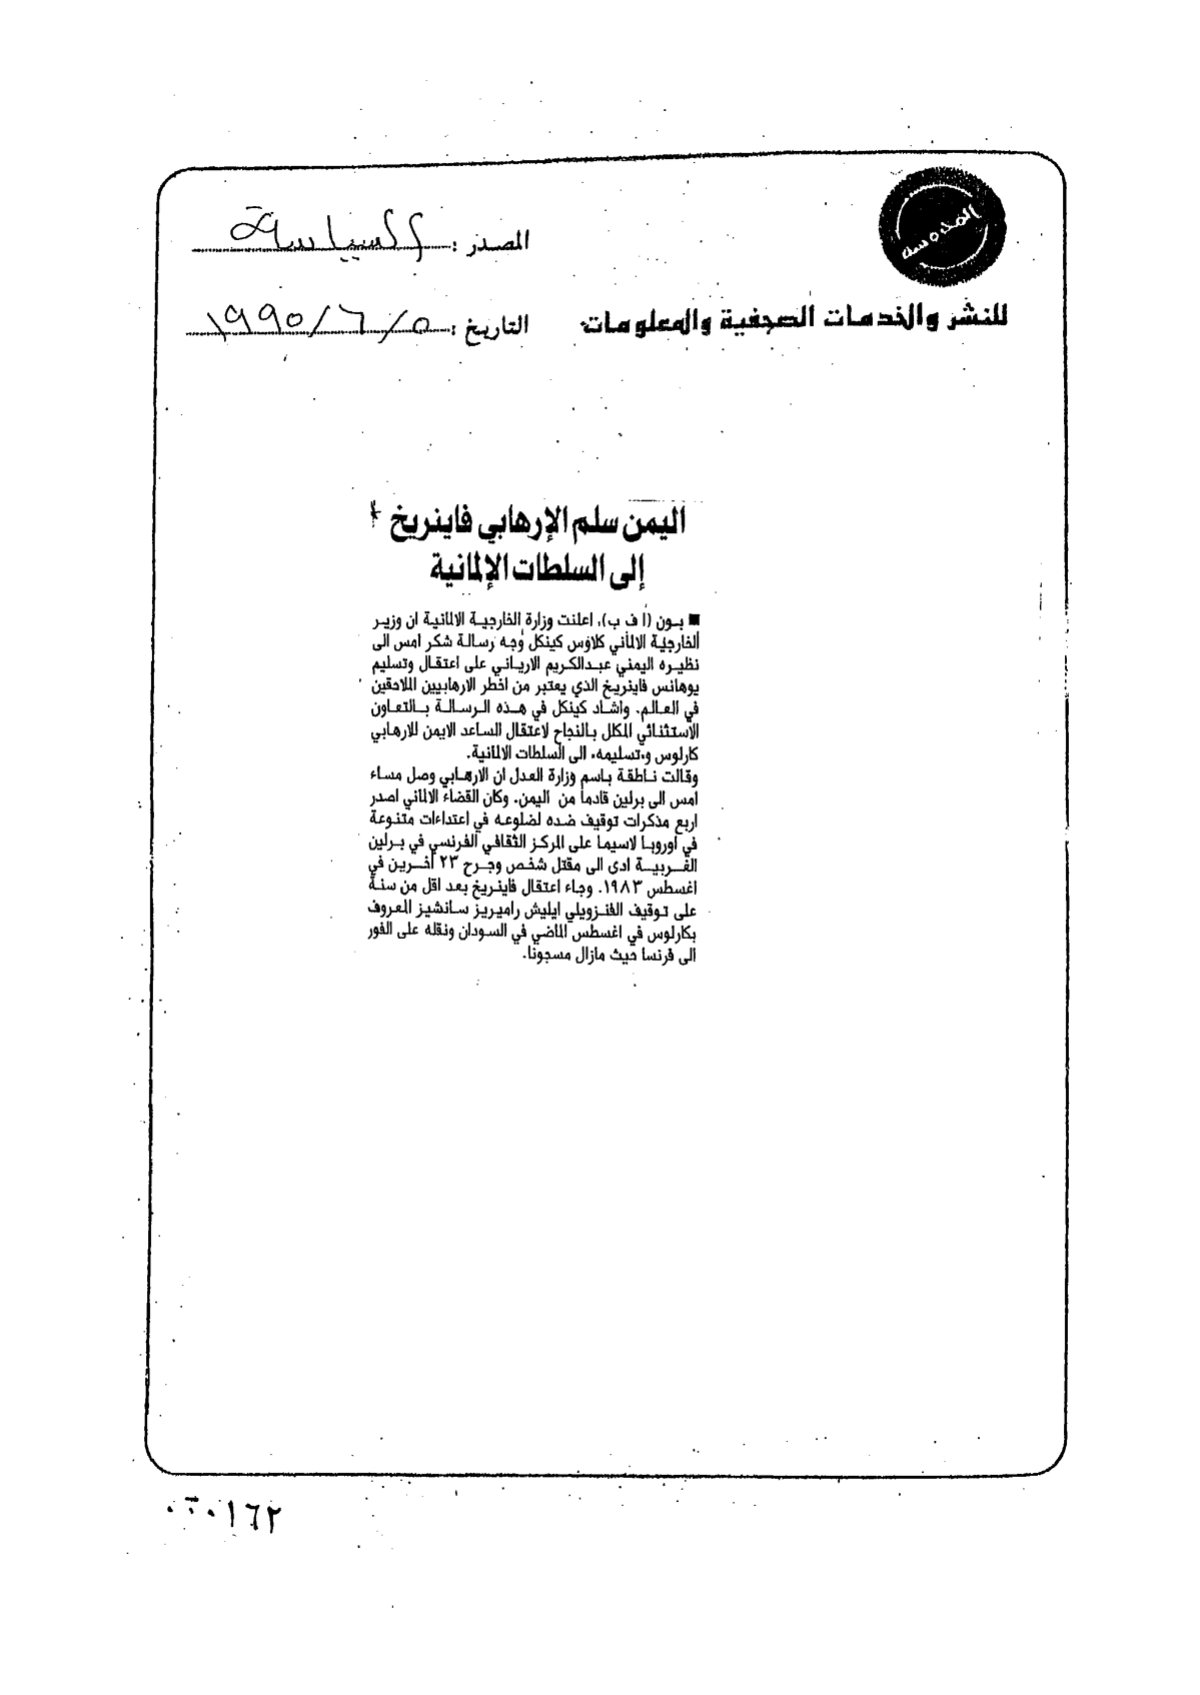 المصدر : السياسة
للنشر والخدمات الصحفية والمعلومات
التاريخ : ٥ / ٦ / ١٩٩٥
اليمن سلم الإرهابي فاينريخ
إلى السلطات الإلمانية
■ بون (أ ف ب). اعلنت وزارة الخارجية الالمانية ان وزير
الخارجية الالماني كلاوس كينكل وجه رسالة شكر امس الى
نظيره اليمني عبدالكريم الارياني على اعتقال وتسليم
يوهانس فاينريخ الذي يعتبر من اخطر الارهابيين الملاحقين
في العالم. واشاد كينكل في هذه الرسالة بالتعاون
الاستثنائي المكلل بالنجاح لاعتقال الساعد الايمن للارهابي
كارلوس و«تسليمه» الى السلطات الالمانية.
وقالت ناطقة باسم وزارة العدل ان الارهابي وصل مساء
امس الى برلين قادما من اليمن. وكان القضاء الالماني اصدر
اربع مذكرات توقيف ضده لضلوعه في اعتداءات متنوعة
في اوروبا لاسيما على المركز الثقافي الفرنسي في برلين
الغربية ادى الى مقتل شخص وجرح ٢٣ آخرين في
اغسطس ١٩٨٣. وجاء اعتقال فاينريخ بعد اقل من سنة
على توقيف الفنزويلي ايليش راميريز سانشيز المعروف
بكارلوس في اغسطس الماضي في السودان ونقله على الفور
الى فرنسا حيث مازال مسجونا.